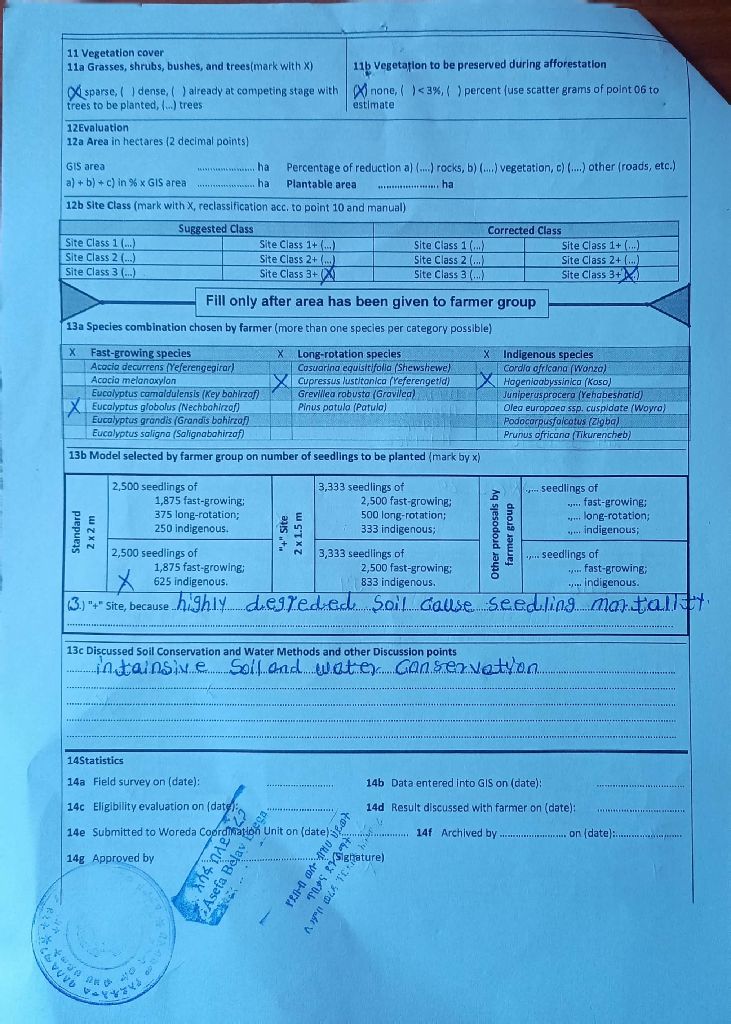 11 Vegetation cover
11a Grasses, shrubs, bushes, and trees(mark with X)
(X) sparse, ( ) dense, ( ) already at competing stage with
trees to be planted, (...) trees
11b Vegetation to be preserved during afforestation
(X) none, ( ) < 3%, ( ) percent (use scatter grams of point 06 to
estimate
12Evaluation
12a Area in hectares (2 decimal points)
GIS area .................... ha Percentage of reduction a) (....) rocks, b) (....) vegetation, c) (....) other (roads, etc.)
a) + b) + c) in % x GIS area .................... ha Plantable area .................... ha
12b Site Class (mark with X, reclassification acc. to point 10 and manual)
Suggested Class Corrected Class
Site Class 1 (...) Site Class 1+ (...) Site Class 1 (...) Site Class 1+ (...)
Site Class 2 (...) Site Class 2+ (...) Site Class 2 (...) Site Class 2+ (...)
Site Class 3 (...) Site Class 3+ (X) Site Class 3 (...) Site Class 3+ (X)
Fill only after area has been given to farmer group
13a Species combination chosen by farmer (more than one species per category possible)
X Fast-growing species X Long-rotation species X Indigenous species
Acacia decurrens (Yeferengegirar) Casuarina equisitifolia (Shewshewe) Cordia africana (Wanza)
Acacia melanoxylon X Cupressus lustitanica (Yeferengetid) X Hageniaabyssinica (Koso)
Eucalyptus camaldulensis (Key bahirzaf) Grevillea robusta (Gravilea) Juniperusprocera (Yehabeshatid)
X Eucalyptus globolus (Nechbahirzaf) Pinus patula (Patula) Olea europaea ssp. cuspidate (Woyra)
Eucalyptus grandis (Grandis bahirzaf) Podocarpusfalcatus (Zigba)
Eucalyptus saligna (Salignabahirzaf) Prunus africana (Tikurencheb)
13b Model selected by farmer group on number of seedlings to be planted (mark by x)
Standard
2 x 2 m
2,500 seedlings of
1,875 fast-growing;
375 long-rotation;
250 indigenous.
2,500 seedlings of
1,875 fast-growing;
X 625 indigenous.
"+" Site
2 x 1.5 m
3,333 seedlings of
2,500 fast-growing;
500 long-rotation;
333 indigenous;
3,333 seedlings of
2,500 fast-growing;
833 indigenous.
Other proposals by
farmer group
.,... seedlings of
.,... fast-growing;
.,... long-rotation;
.,... indigenous;
.,... seedlings of
.,... fast-growing;
.,... indigenous.
(3.) "+" Site, because highly degreded soil cause seedling mortality.
13c Discussed Soil Conservation and Water Methods and other Discussion points
intainsive soil and water conservation
14Statistics
14a Field survey on (date): ....................
14b Data entered into GIS on (date): ....................
14c Eligibility evaluation on (date): ....................
14d Result discussed with farmer on (date): ....................
14e Submitted to Woreda Coordination Unit on (date): ....................
14f Archived by .................... on (date):....................
14g Approved by .................... (Signature)
Asefa Belay